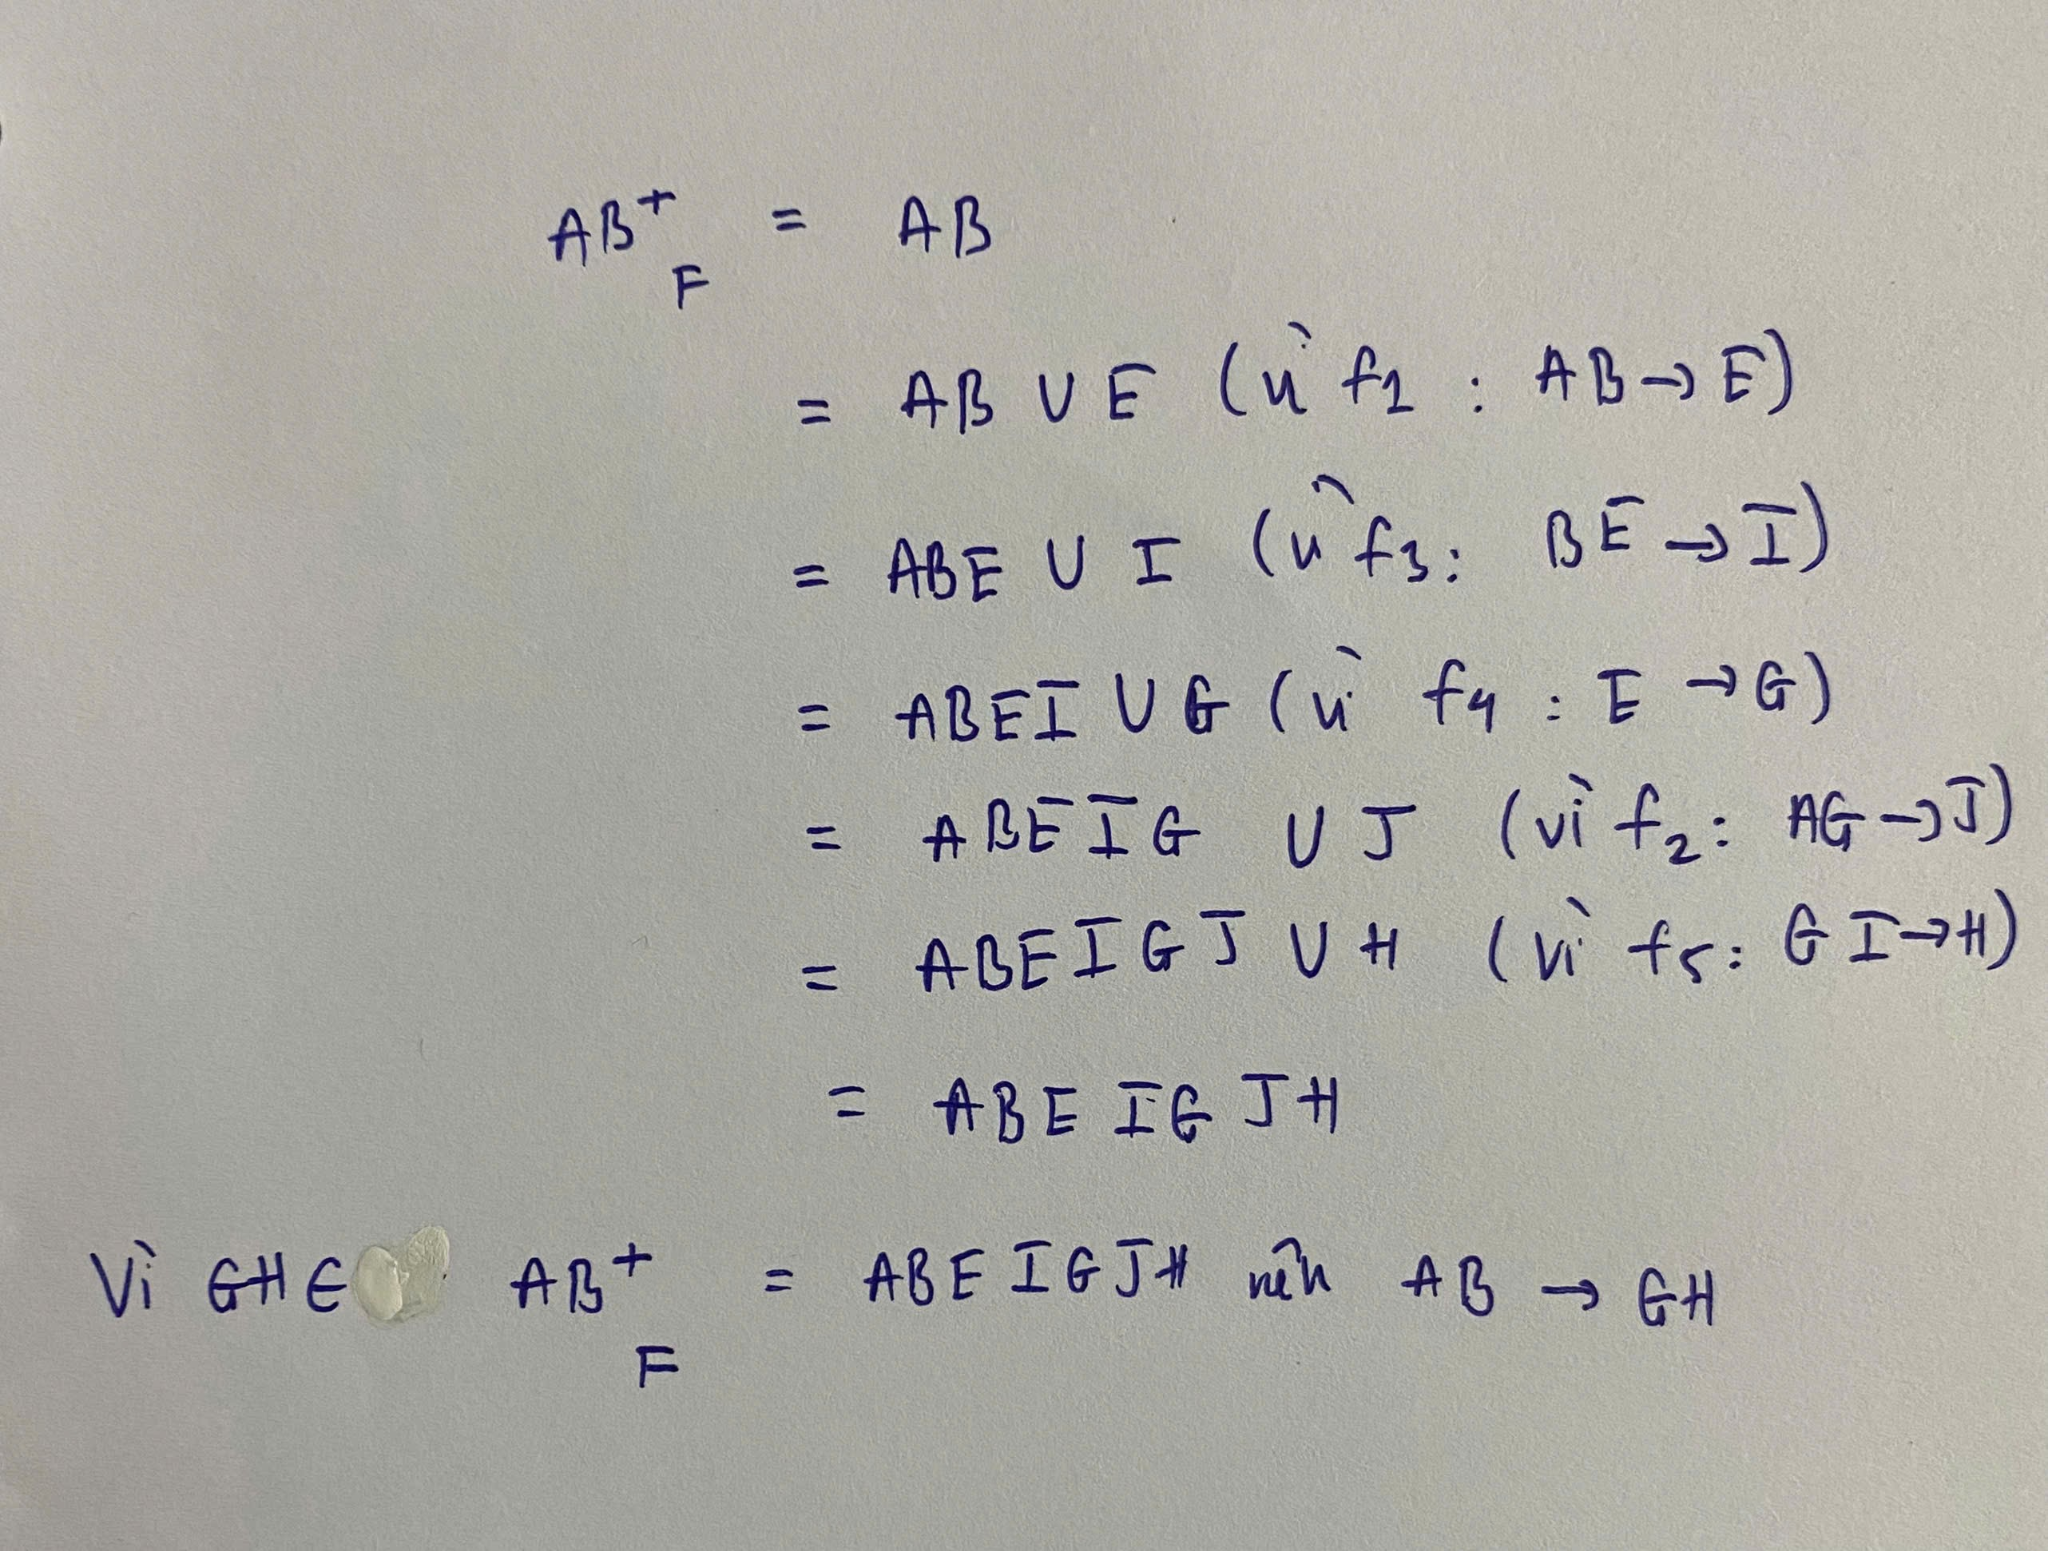 AB⁺F = AB
= AB ∪ E (vì f1 : AB → E)
= ABE ∪ I (vì f3: BE → I)
= ABEI ∪ G (vì f4 : E → G)
= ABEIG ∪ J (vì f2: AG → J)
= ABEIGJ ∪ H (vì f5: GI → H)
= ABEIGJH
Vì GH ∈ AB⁺F = ABEIGJH nên AB → GH